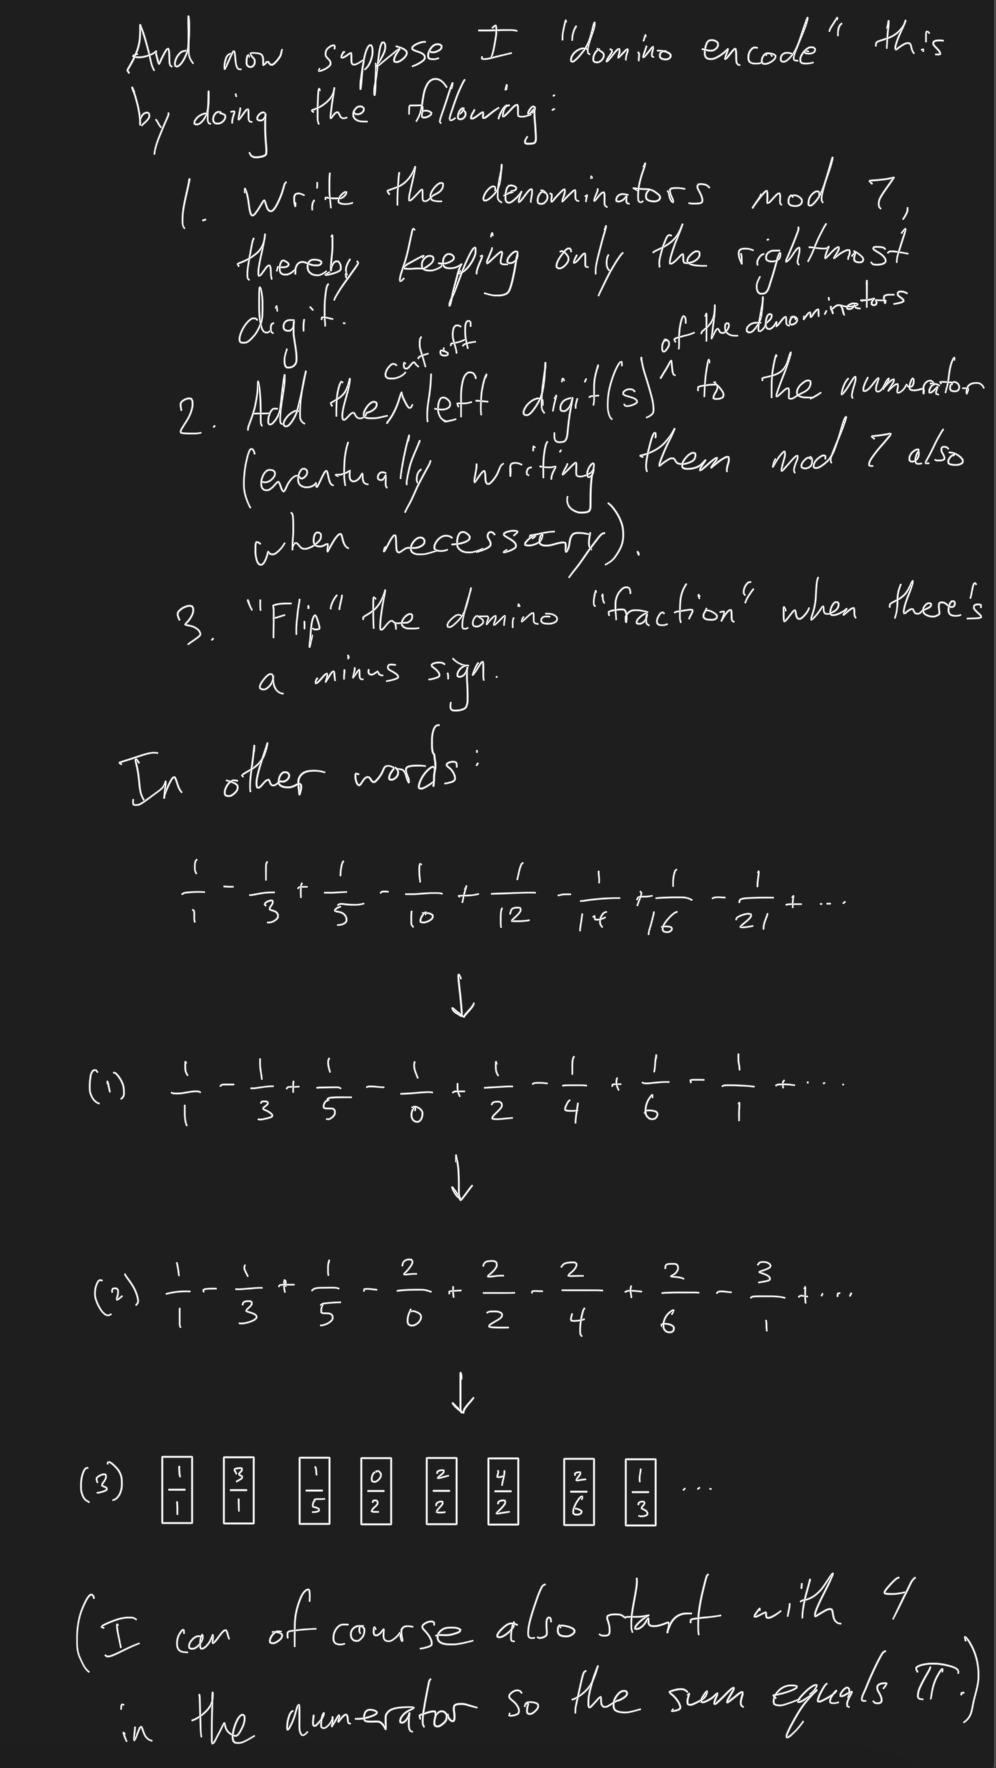 And now suppose I "domino encode" this
by doing the following:
1. Write the denominators mod 7,
thereby keeping only the rightmost
digit.
2. Add the cut off left digit(s) of the denominators to the numerator
(eventually writing them mod 7 also
when necessary).
3. "Flip" the domino "fraction" when there's
a minus sign.
In other words:
1/1 - 1/3 + 1/5 - 1/10 + 1/12 - 1/14 + 1/16 - 1/21 + ...
↓
(1) 1/1 - 1/3 + 1/5 - 1/0 + 1/2 - 1/4 + 1/6 - 1/1 + ...
↓
(2) 1/1 - 1/3 + 1/5 - 2/0 + 2/2 - 2/4 + 2/6 - 3/1 + ...
↓
(3) 1/1 3/1 1/5 0/2 2/2 4/2 2/6 1/3 ...
(I can of course also start with 4
in the numerator so the sum equals π.)